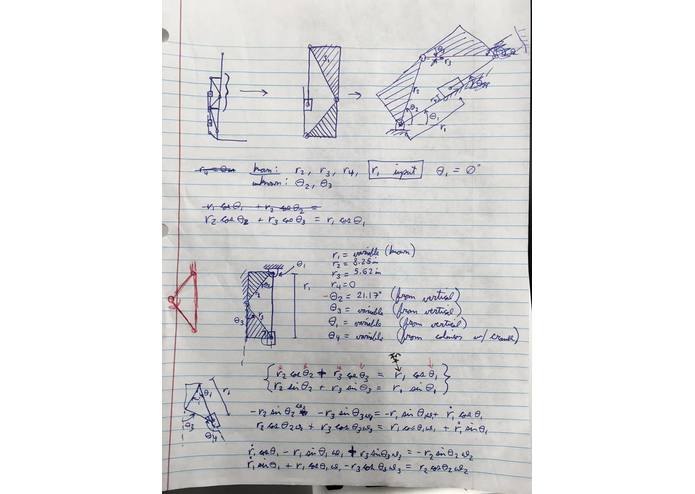 r₃
r₂
r₁
θ₂
θ₁
known: r₂, r₃, r₄, r₁ input θ₁ = 0°
unknown: θ₂, θ₃
r₂ cosθ₂ + r₃ cosθ₃ = r₁ cosθ₁
r₁ = variable (known)
r₂ = 5.25in
r₃ = 5.62in
r₄ = 0
-θ₂ = 21.17° (from vertical)
θ₃ = variable (from vertical)
θ₁ = variable (from vertical)
θ₄ = variable (from
θ₁
r₁
θ₃
r₂ cosθ₂ + r₃ cosθ₃ = r₁ cosθ₁
r₂ sinθ₂ + r₃ sinθ₃ = r₁ sinθ₁
θ₁
r₁
θ₃
θ₄
-r₂ sinθ₂ω₂ - r₃ sinθ₃ω₃ = -r₁ sinθ₁ω₁ + ṙ₁ cosθ₁
r₂ cosθ₂ω₂ + r₃ cosθ₃ω₃ = r₁ cosθ₁ω₁ + ṙ₁ sinθ₁
ṙ₁ cosθ₁ - r₁ sinθ₁ω₁ + r₃ sinθ₃ω₃ = -r₂ sinθ₂ω₂
ṙ₁ sinθ₁ + r₁ cosθ₁ω₁ - r₃ cosθ₃ω₃ = r₂ cosθ₂ω₂